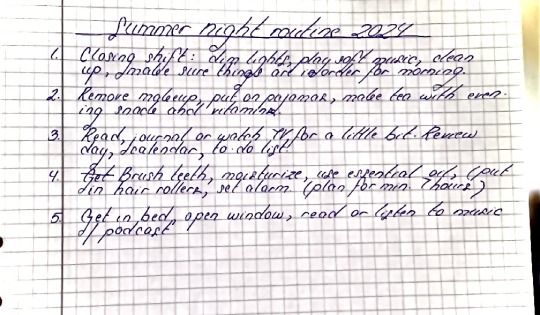 Summer night routine 2024
1. Closing shift: dim lights, play soft music, clean
up, make sure things are in order for morning.
2. Remove makeup, put on pajamas, make tea with even-
ing snack and vitamins.
3. Read, journal or watch TV for a little bit. Review
day, calendar, to-do list
4. Brush teeth, moisturize, use essential oil, (put
in hair rollers, set alarm (plan for min. 7 hours)
5. Get in bed, open window, read or listen to music
/ podcast